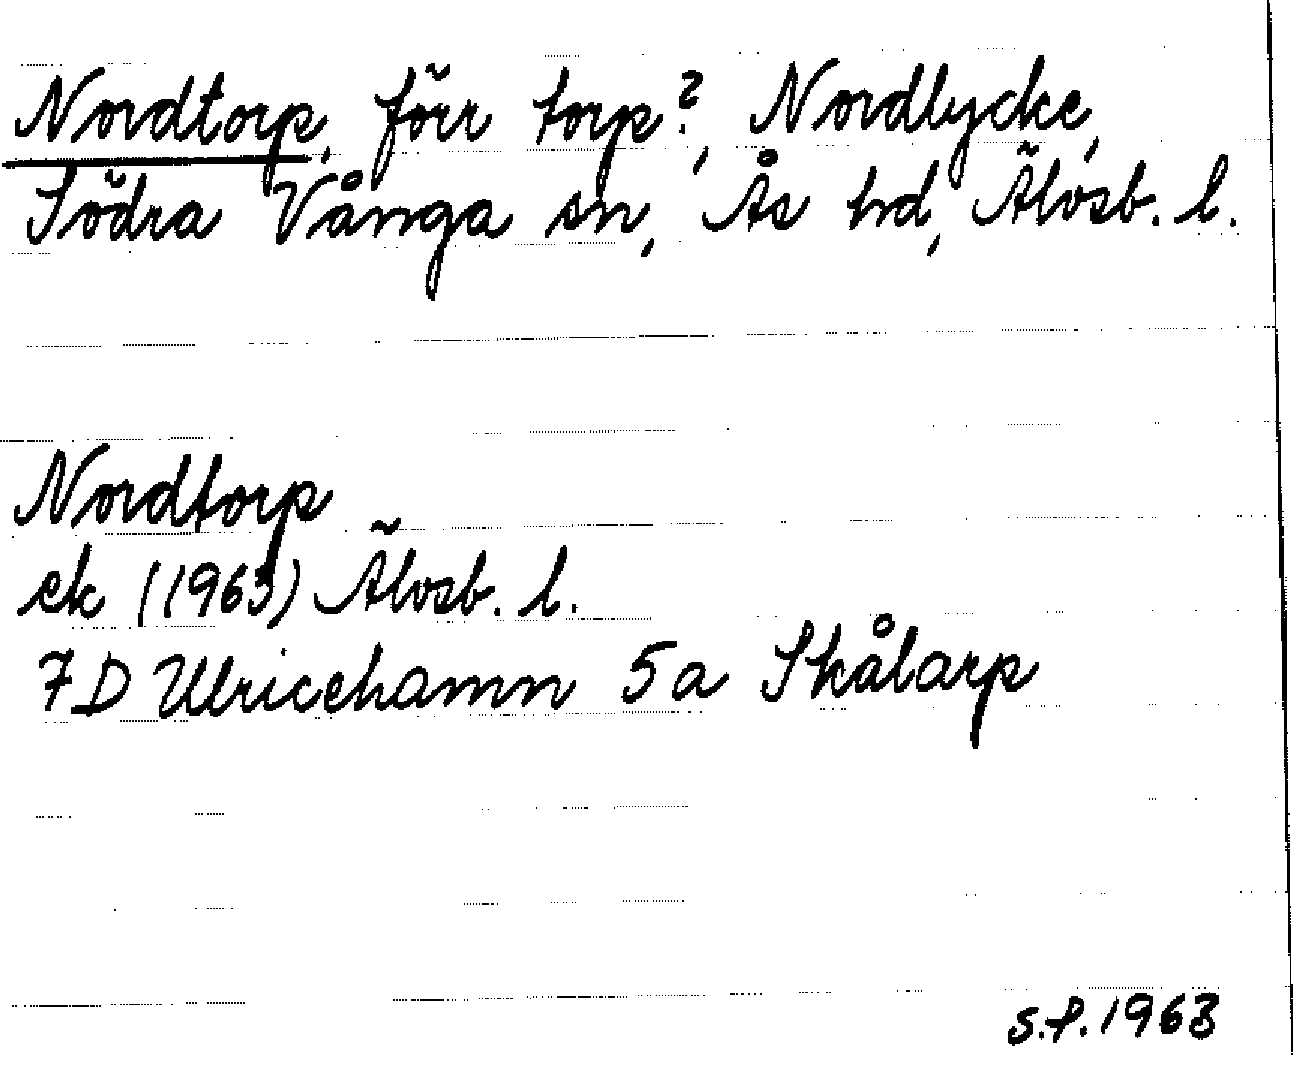 Nordtorp, förr torp?, Nordlycke,
Södra Vånga sn, Ås hd, Älvsb. l.
Nordtorp
ek (1963) Älvsb. l.
7D Ulricehamn 5a Skålarp
S.P. 1963